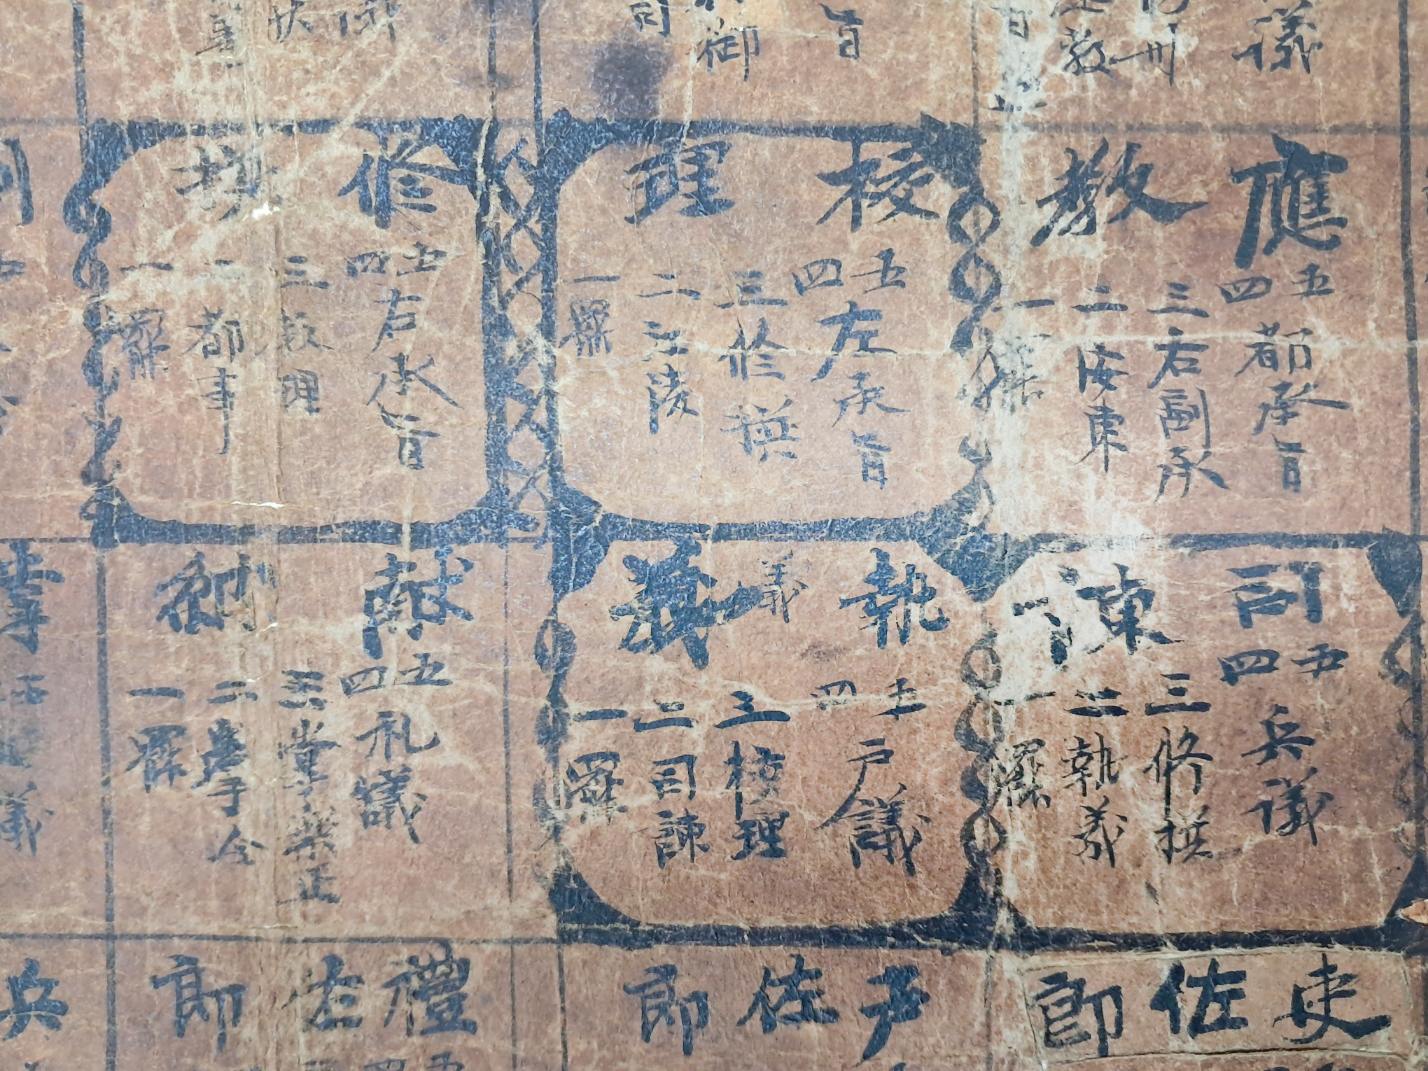 議
州
教
旨
御
司
應教
五
四 都承旨
三 右副承
二 東
一 罷
校理
五
四 左承旨
三 修撰
二 江陵
一 罷
修撰
五
四 右承旨
三 校理
二 都事
一 罷
司諫
五
四 兵議
三 修撰
二 執義
一 罷
執義
議
五
四 戶議
三 校理
二 司諫
一 罷
献納
五
四 礼議
三 掌楽正
二 掌令
一 罷
掌
議
吏佐郎
戶佐郎
禮佐郎
兵